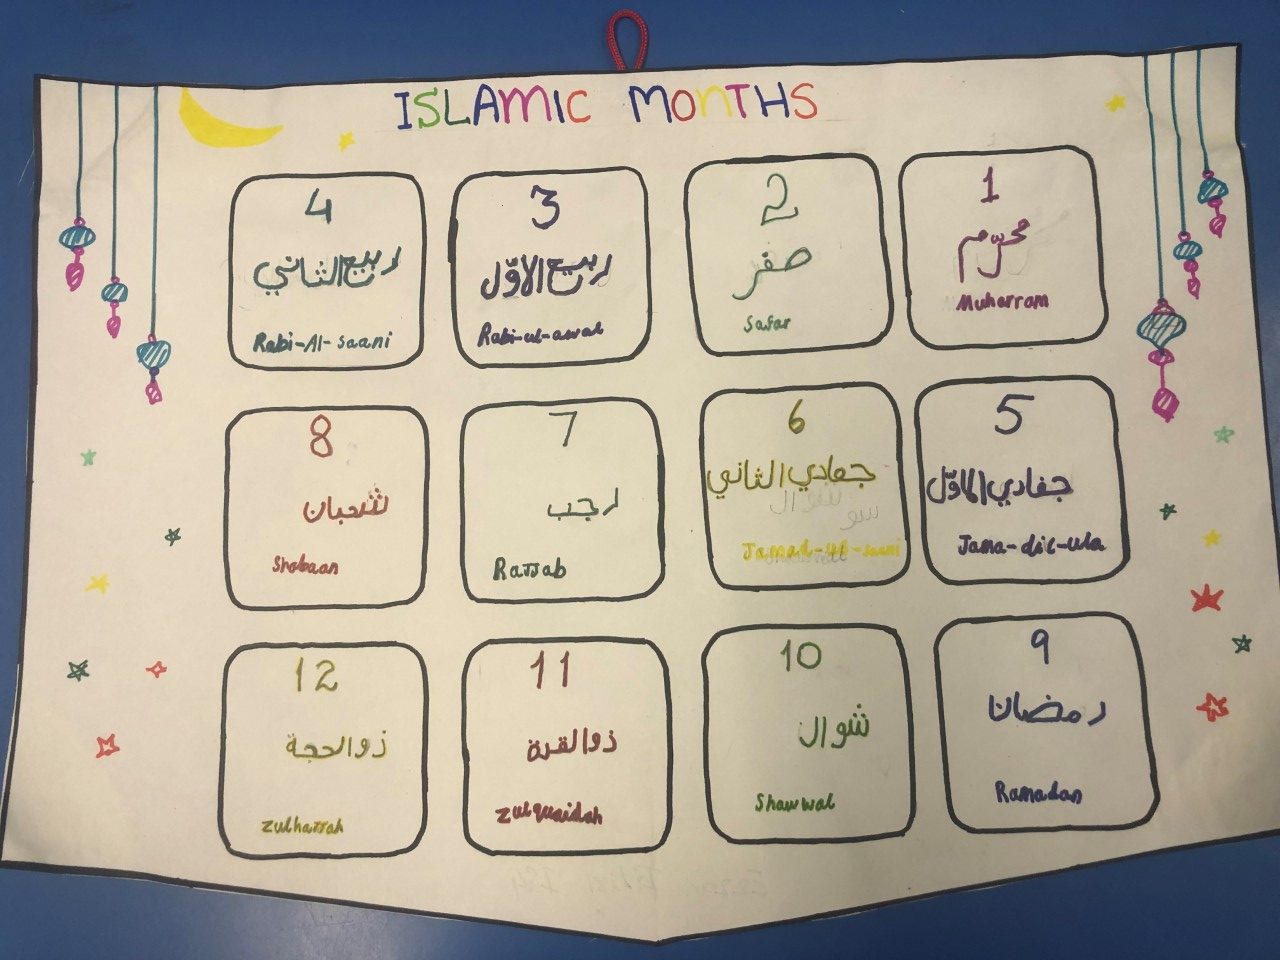 ISLAMIC MONTHS
1
محرّم
Muharram
2
صفر
Safar
3
ربيع الاوّل
Rabi-ul-awal
4
ربيع الثاني
Rabi-Al-saani
5
جمادي الاوّل
Jama-dil-ula
6
جمادي الثاني
Jamad-ul-saani
7
رجب
Rajjab
8
شعبان
Shabaan
9
رمضان
Ramadan
10
شوال
Shawwal
11
ذوالقرة
zulquaidah
12
ذوالحجة
zulhajjah